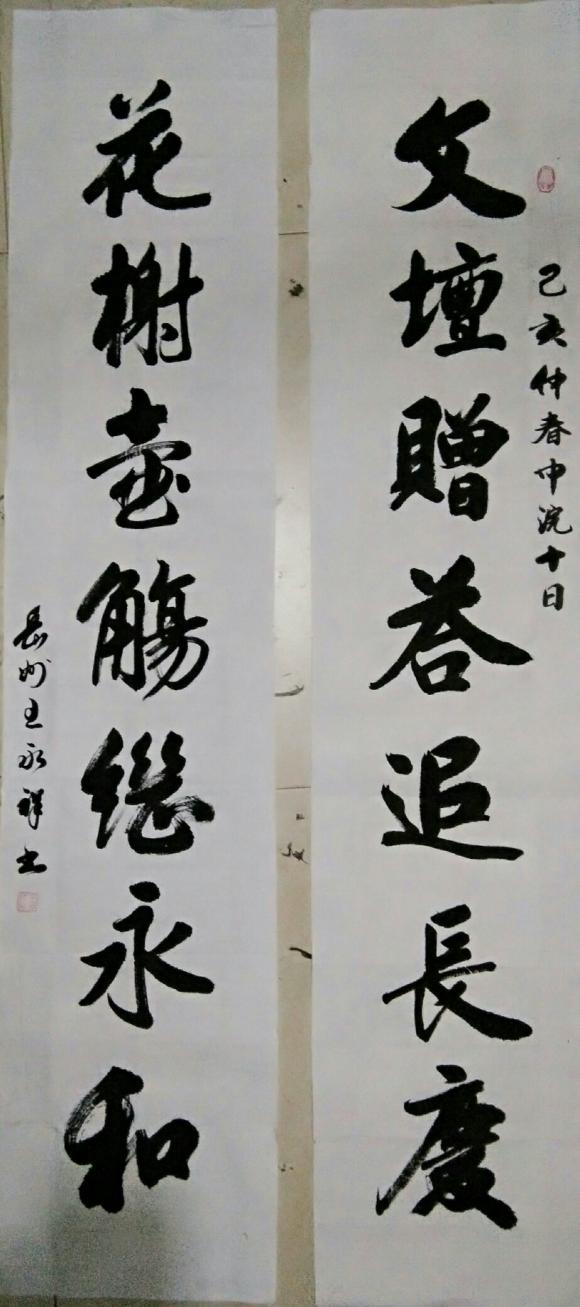 己亥仲春中浣十日
文壇贈荅追長慶
花榭壺觴繼永和
州王永祥书